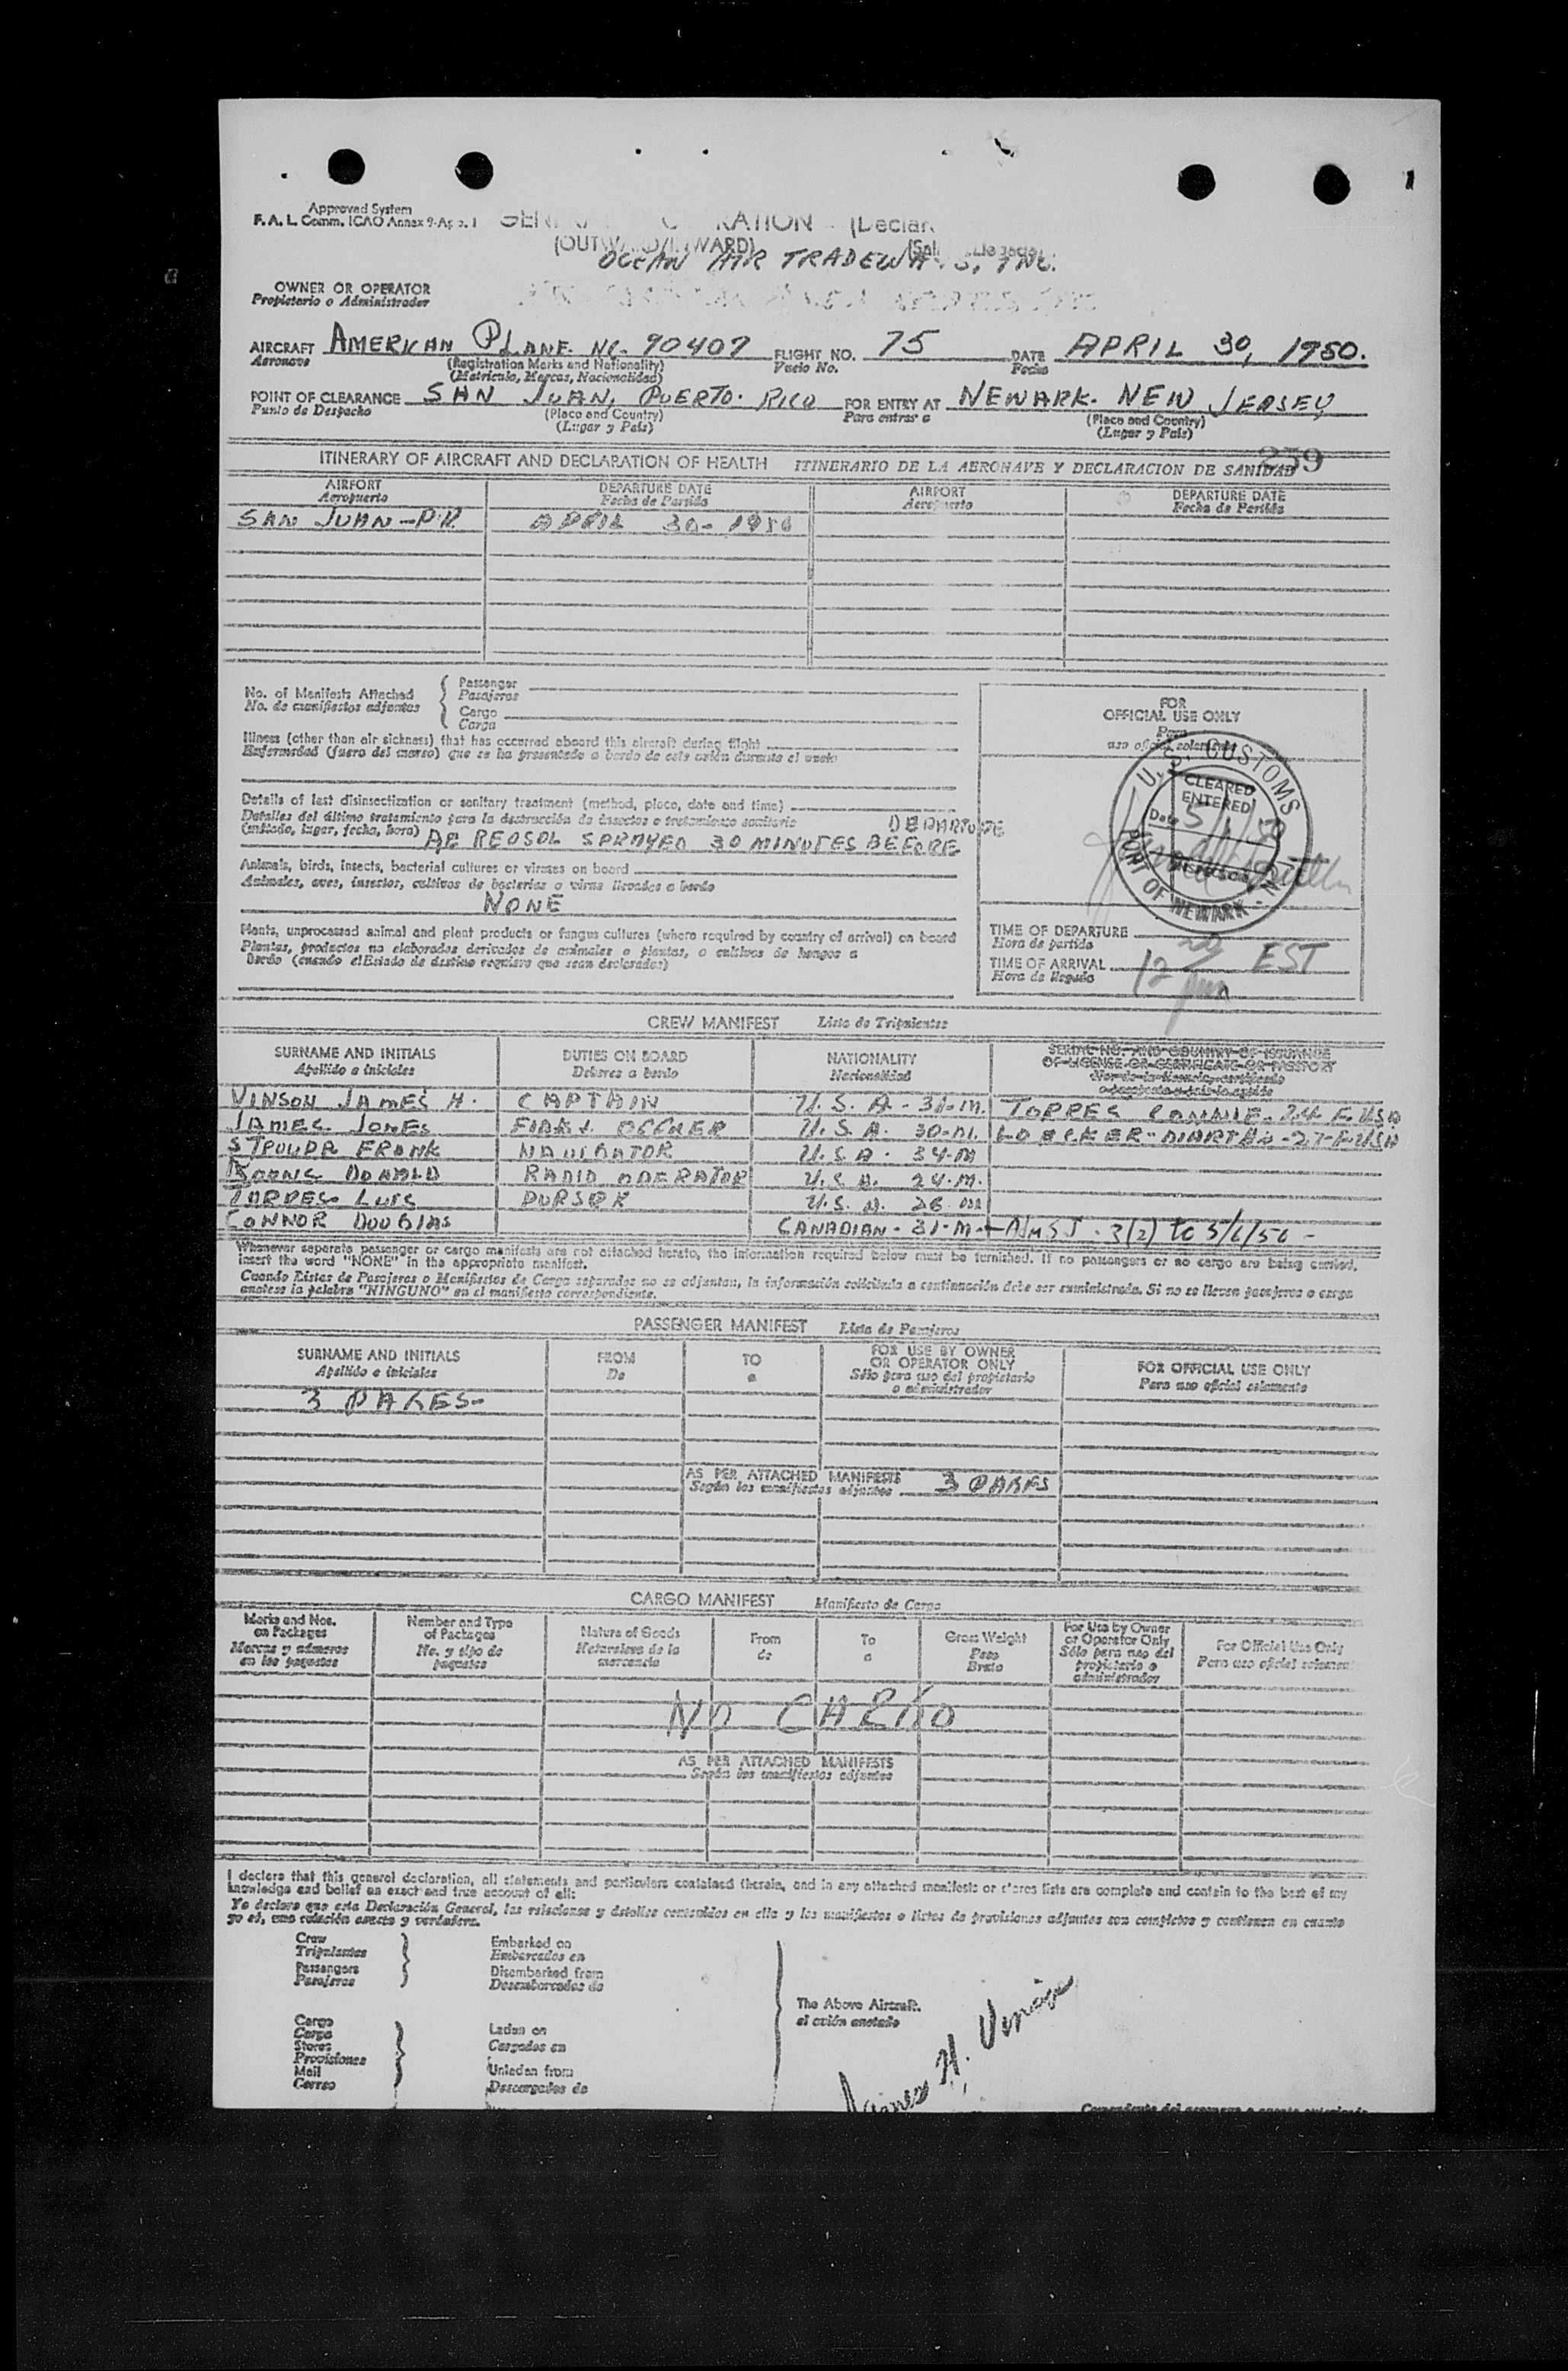 Approved System
F. A. L. Comm. ICAO Annex 9-App. 1
(OUTWARD/INWARD)
OCEAN AIR TRADEWAYS, INC.
OWNER OR OPERATOR
Propietario o Administrador
AIRCRAFT AMERICAN PLANE. NC. 90407 FLIGHT NO. 75 DATE APRIL 30, 1950.
Aeronave (Registration Marks and Nationality) Vuelo No. Fecha
(Matricula, Marcas, Nacionalidad)
POINT OF CLEARANCE SAN JUAN, PUERTO. RICO FOR ENTRY AT NEWARK. NEW JERSEY
Punto de Despacho (Place and Country) Para entrar a (Place and Country)
(Lugar y País) (Lugar y País)
239
ITINERARY OF AIRCRAFT AND DECLARATION OF HEALTH ITINERARIO DE LA AERONAVE Y DECLARACION DE SANIDAD
AIRPORT DEPARTURE DATE AIRPORT DEPARTURE DATE
Aeropuerto Fecha de Partida Aeropuerto Fecha de Partida
SAN JUAN-P.R. APRIL 30-1950
No. of Manifests Attached
No. de manifiestos adjuntos
Passenger
Pasajeros
Cargo
Carga
Illness (other than air sickness) that has occurred aboard this aircraft during flight
Enfermedad (fuera del mareo) que se ha presentado a bordo de este avión durante el vuelo
Details of last disinsectization or sanitary treatment (method, place, date and time)
Detalles del último tratamiento para la destrucción de insectos o tratamiento sanitario
(método, lugar, fecha, hora) AEREOSOL SPRAYED 30 MINUTES BEFORE DEPARTURE
Animals, birds, insects, bacterial cultures or viruses on board
Animales, aves, insectos, cultivos de bacterias o virus llevados a bordo
NONE
Plants, unprocessed animal and plant products or fungus cultures (where required by country of arrival) on board
Plantas, productos no elaborados derivados de animales o plantas, o cultivos de hongos a
bordo (cuando el Estado de destino requiera que sean declarados)
FOR
OFFICIAL USE ONLY
Para
uso oficial solamente
U. S. CUSTOMS
CLEARED
ENTERED
Date 5/1/50
PORT OF NEWARK - N.J.
TIME OF DEPARTURE
Hora de partida
TIME OF ARRIVAL 12 20 pm EST
Hora de llegada
CREW MANIFEST Lista de Tripulantes
SURNAME AND INITIALS DUTIES ON BOARD NATIONALITY SERIAL NO. AND COUNTRY OF ISSUANCE
Apellido e iniciales Deberes a bordo Nacionalidad OF LICENSE OR CERTIFICATE OR PASSPORT
VINSON JAMES H. CAPTAIN U.S.A. - 31-M. TORRES CONNIE-24-F.USA
JAMES JONES FIRST OFFICER U.S.A. 30-M. LOECKER-MARTHA-27-F-USA
STROUPR FRANK NAVIGATOR U.S.A. 34-M
DONALD RADIO OPERATOR U.S.A. 24-M.
TORRES LUIS PURSER U.S.A. 26-M
CONNOR DOUGLAS CANADIAN - 31-M. 3(2) to 5/6/50 -
Whenever separate passenger or cargo manifests are not attached hereto, the information required below must be furnished. If no passengers or no cargo are being carried,
insert the word "NONE" in the appropriate manifest.
Cuando Listas de Pasajeros o Manifiestos de Carga separados no se adjuntan, la información solicitada a continuación debe ser suministrada. Si no se llevan pasajeros o carga
anotese la palabra "NINGUNO" en el manifiesto correspondiente.
PASSENGER MANIFEST Lista de Pasajeros
SURNAME AND INITIALS FROM TO FOR USE BY OWNER OR OPERATOR ONLY FOR OFFICIAL USE ONLY
Apellido e iniciales De a Sólo para uso del propietario o administrador Para uso oficial solamente
3 PAGES-
AS PER ATTACHED MANIFESTS 3 PAGES
Según los manifiestos adjuntos
CARGO MANIFEST Manifiesto de Carga
Marks and Nos. on Packages Number and Type of Packages Nature of Goods From To Gross Weight For Use by Owner or Operator Only For Official Use Only
Marcas y números en los paquetes No. y tipo de paquetes Naturaleza de la mercancia de a Peso Bruto Sólo para uso del propietario o administrador Para uso oficial solamente
NO CARGO
AS PER ATTACHED MANIFESTS
Según los manifiestos adjuntos
I declare that this general declaration, all statements and particulars contained therein, and in any attached manifests or stores lists are complete and contain to the best of my
knowledge and belief an exact and true account of all:
Yo declaro que esta Declaración General, las relaciones y detalles contenidos en ella y los manifiestos o listas de provisiones adjuntos son completos y contienen en cuanto
yo sé, una relación exacta y verdadera.
Crew
Tripulantes
Passengers
Pasajeros
Embarked on
Embarcados en
Disembarked from
Desembarcados de
Cargo
Carga
Stores
Provisiones
Mail
Correo
Laden on
Cargados en
Unladen from
Descargados de
The Above Aircraft.
el avión anotado
James H. Vinson